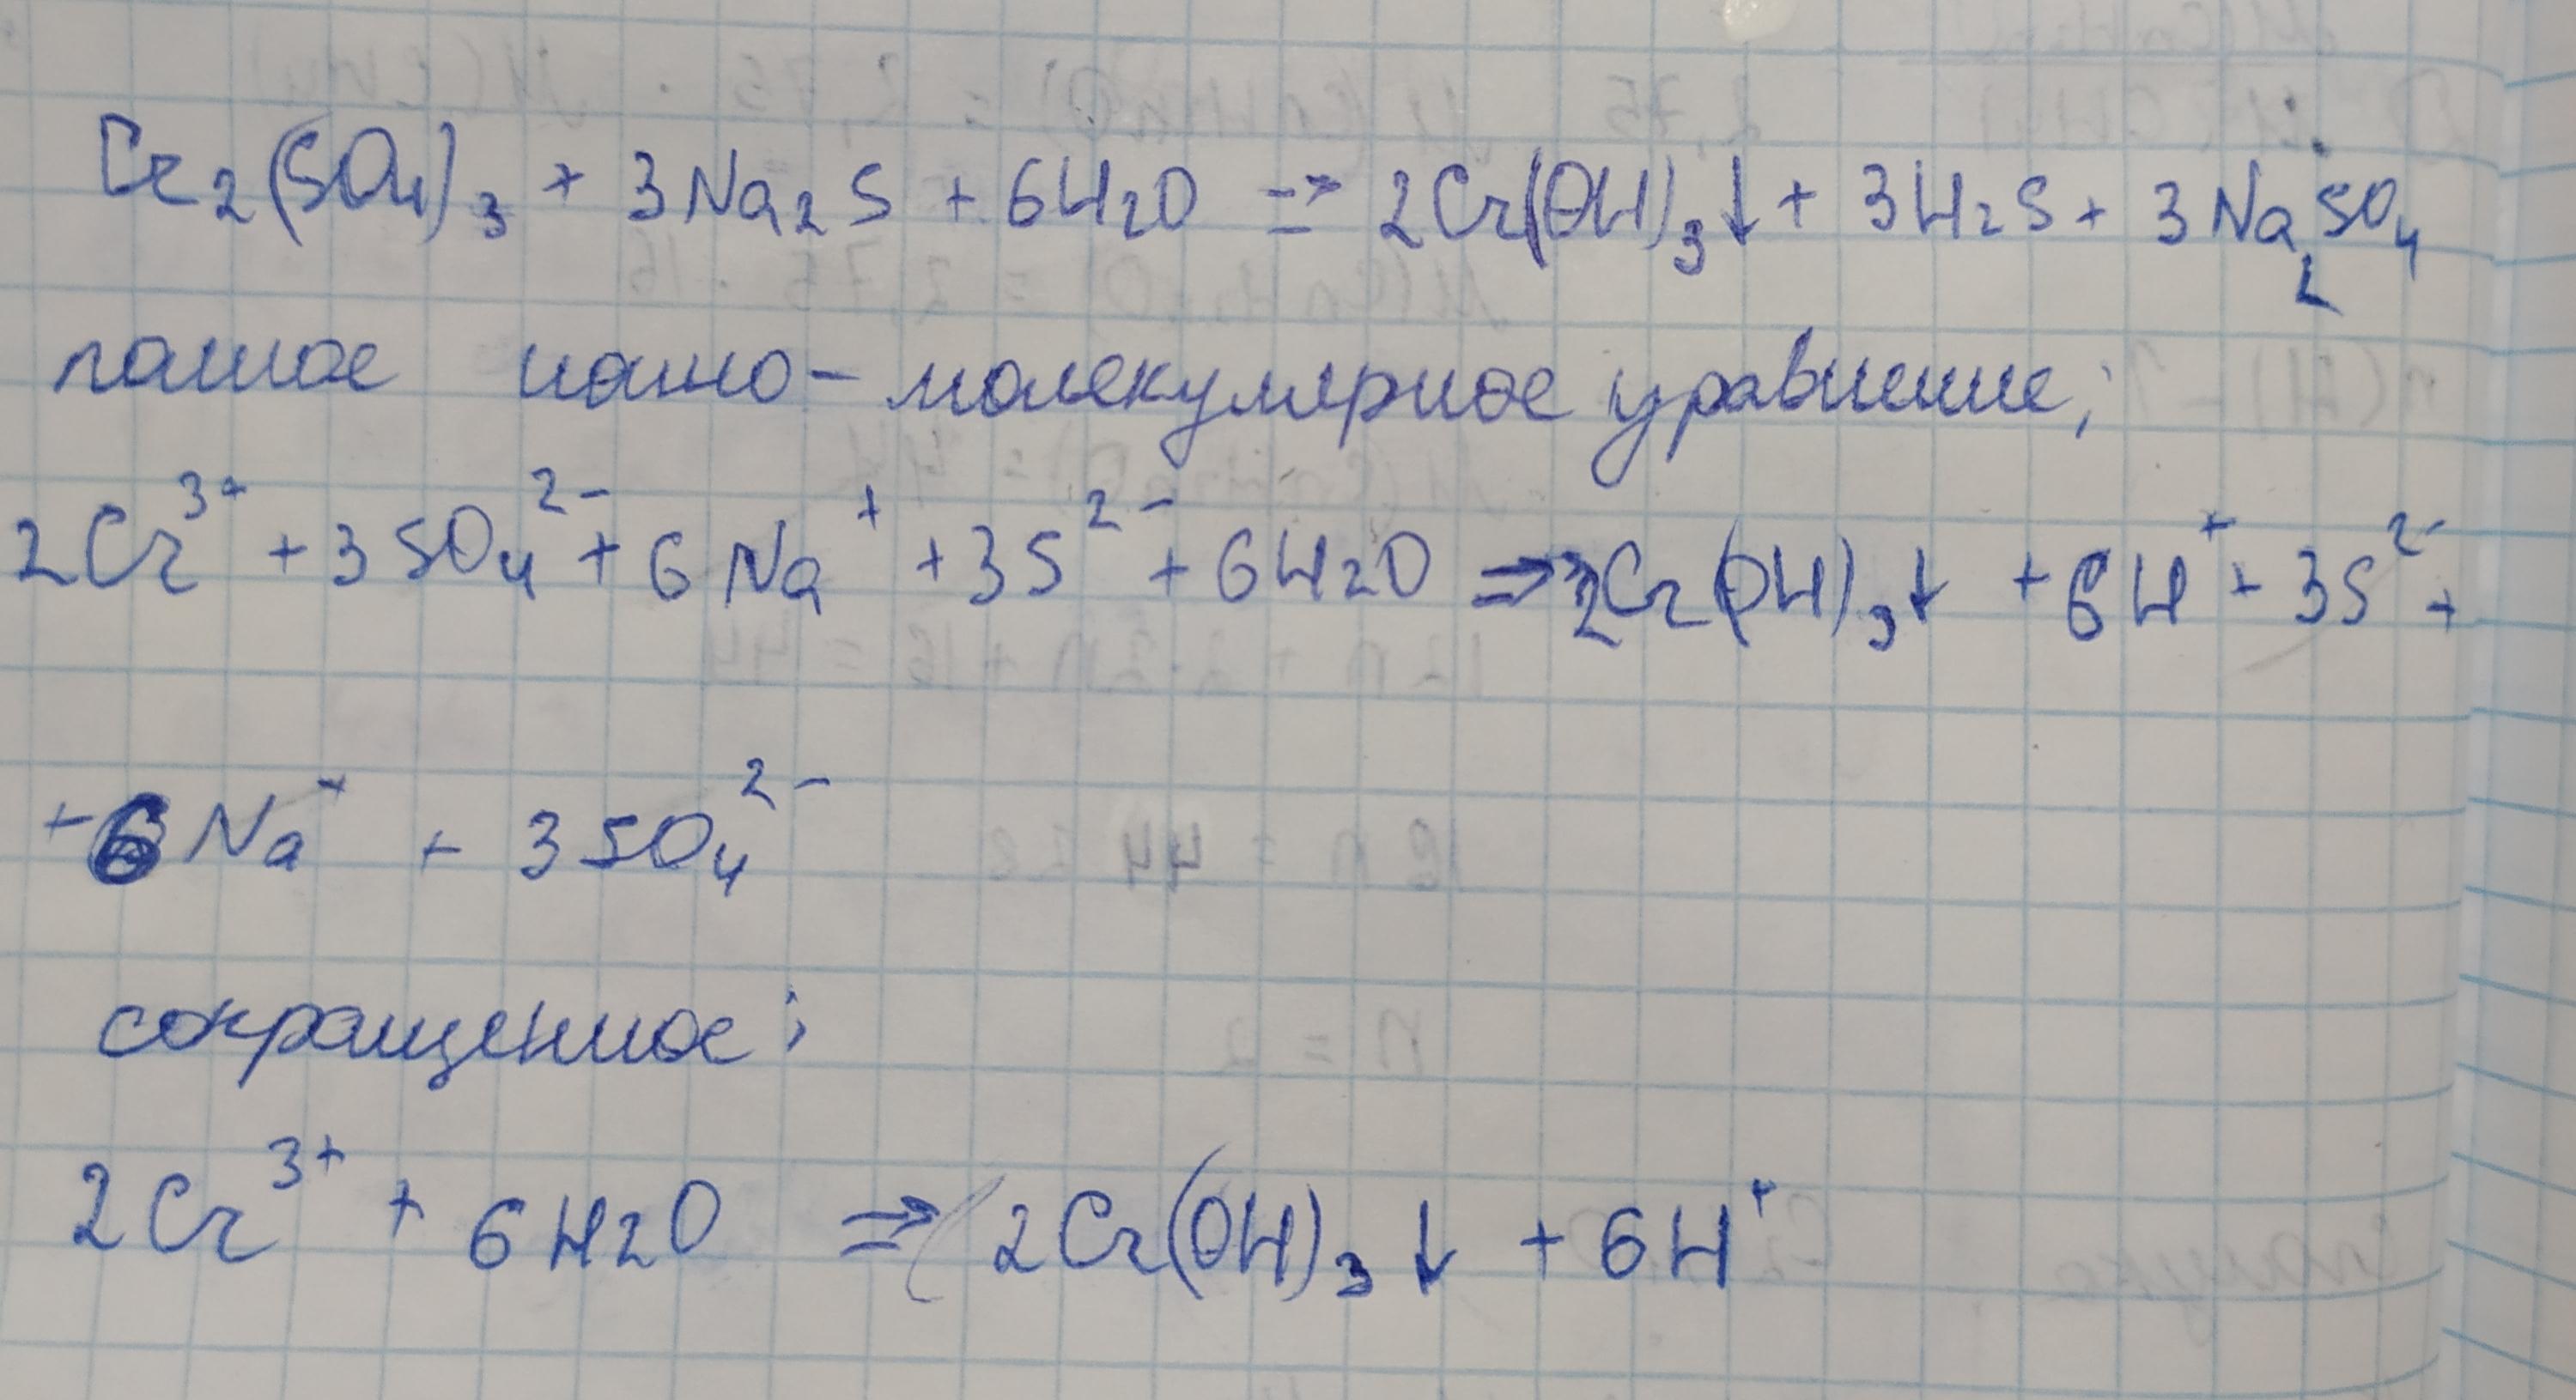 Cr₂(SO₄)₃ + 3Na₂S + 6H₂O ⇒ 2Cr(OH)₃↓ + 3H₂S + 3Na₂SO₄
полное ионно-молекулярное уравнение;
2Cr³⁺ + 3SO₄²⁻ + 6Na⁺ + 3S²⁻ + 6H₂O ⇒ 2Cr(OH)₃↓ + 6H⁺ + 3S²⁻ +
+ 6Na⁺ + 3SO₄²⁻
сокращенное:
2Cr³⁺ + 6H₂O ⇒ 2Cr(OH)₃↓ + 6H⁺